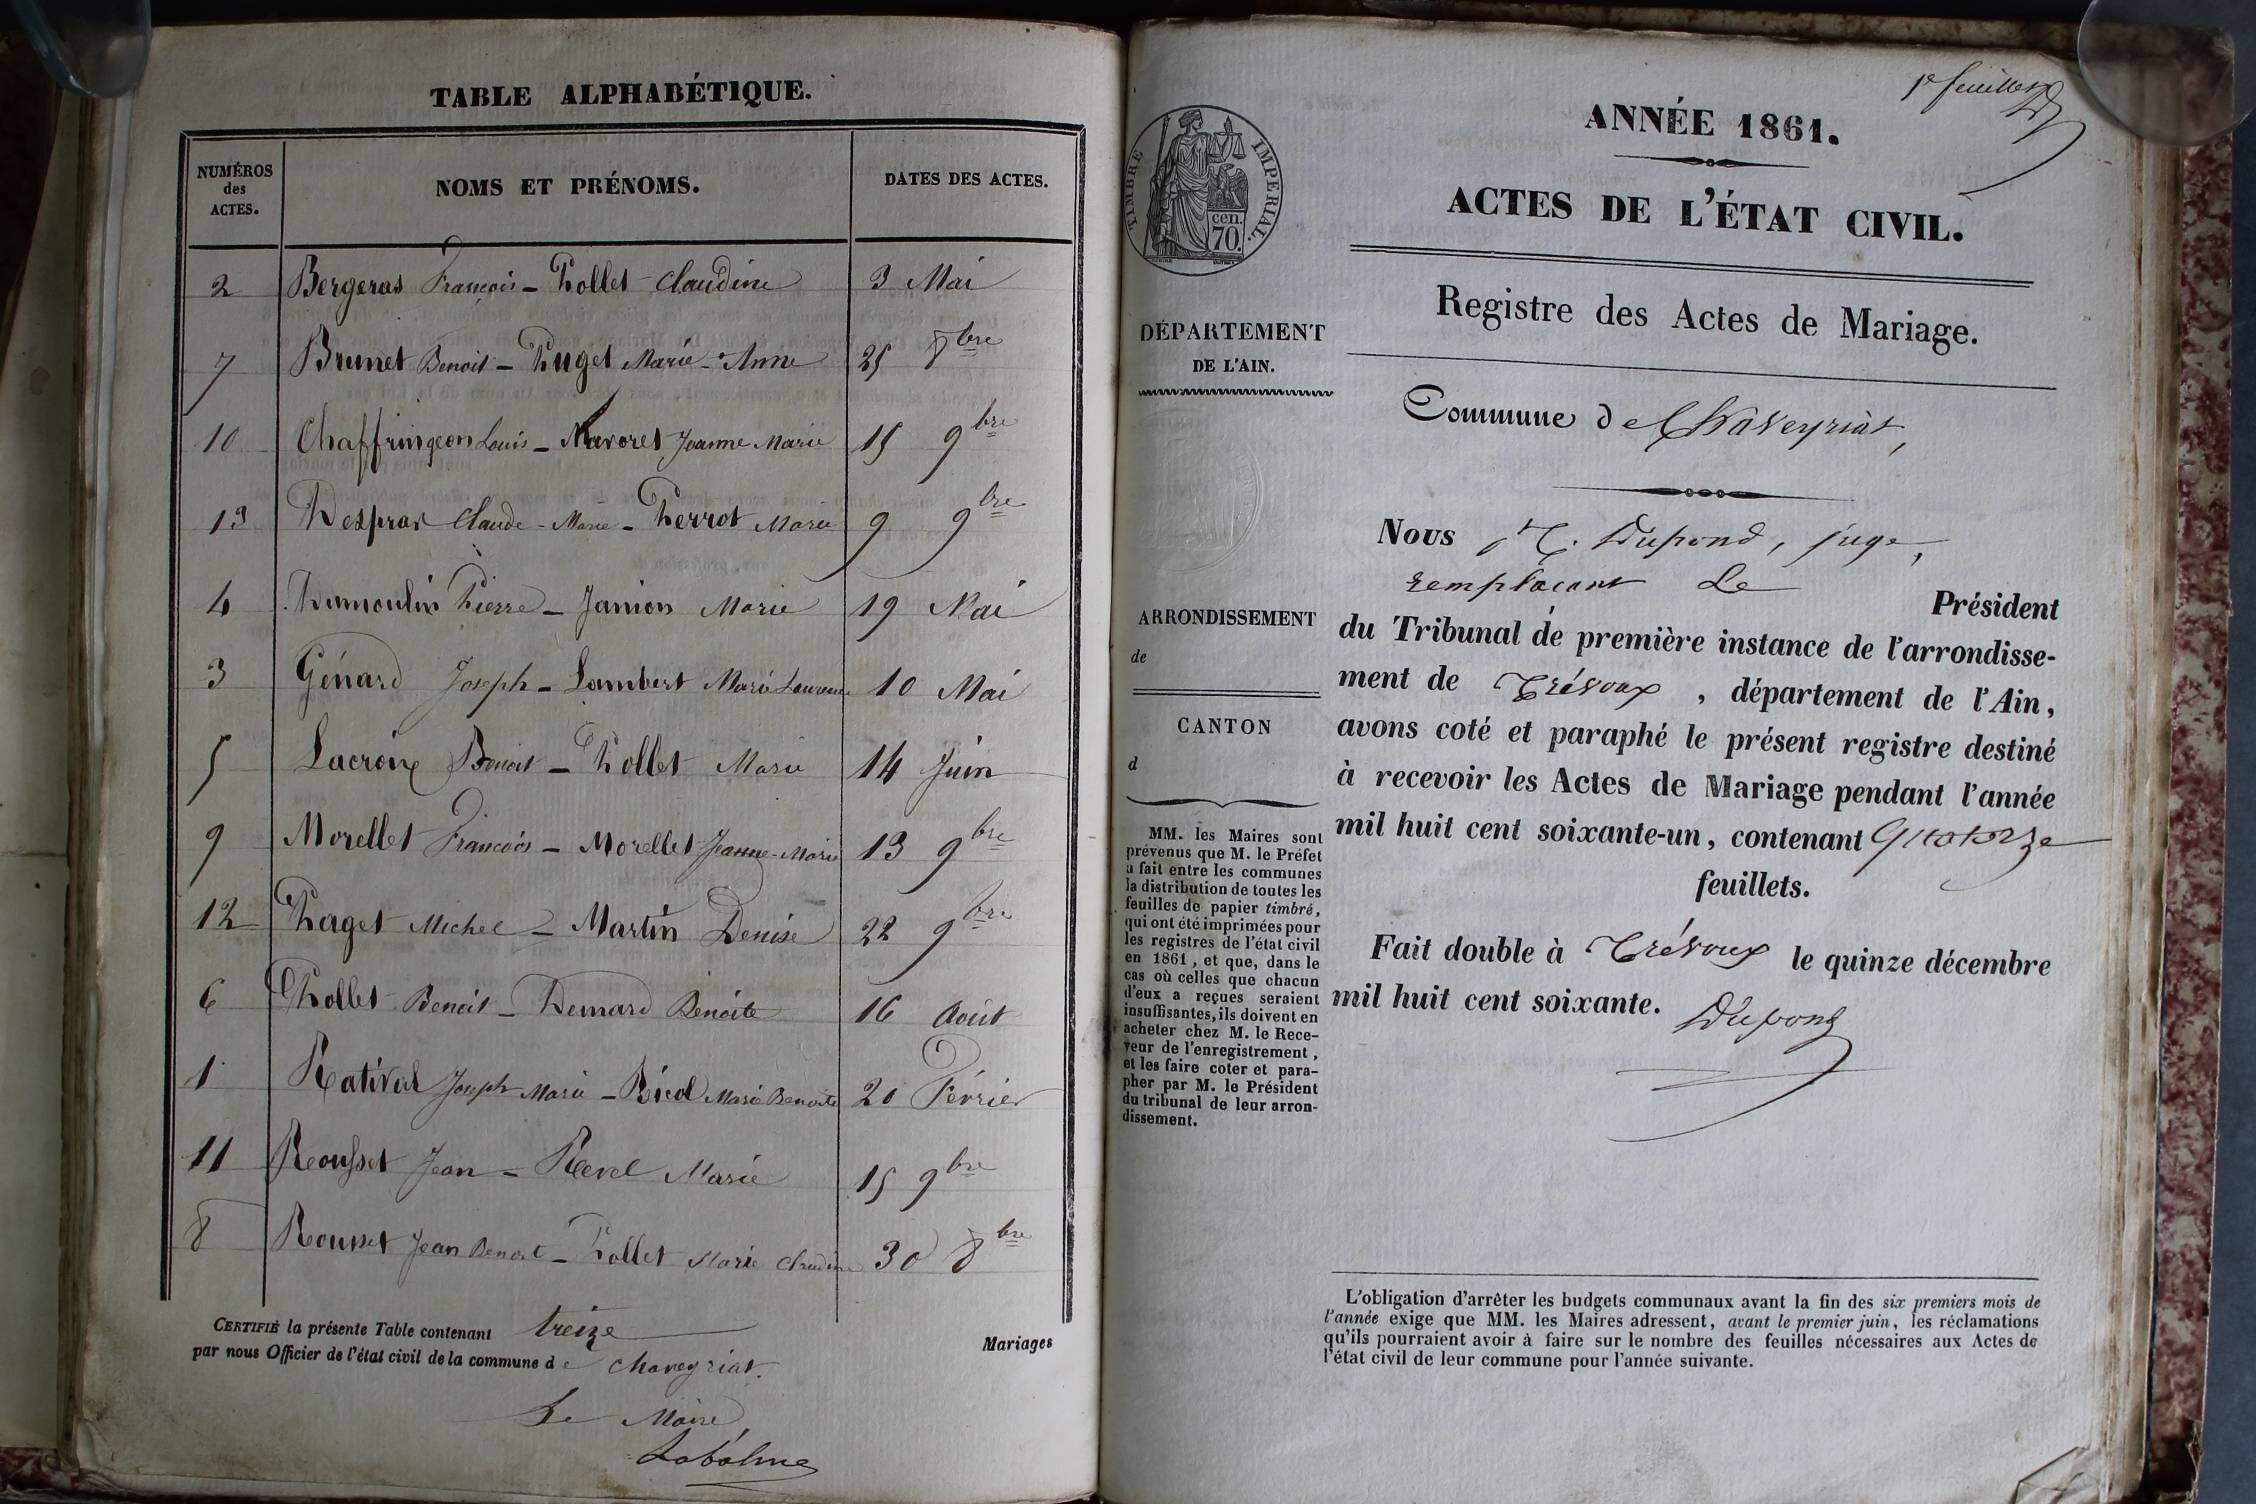 TABLE ALPHABÉTIQUE.
NUMÉROS des ACTES. NOMS ET PRÉNOMS. DATES DES ACTES.
2 Bergeras François - Pollet Claudine 3 Mai
7 Brunet Benoit - Puget Marie-Anne 25 8bre
10 Chaffringeon Louis - Navoret Jeanne Marie 15 9bre
13 Desprar Claude-Marie - Perrot Marie 9 9bre
4 Dumoulin Pierre - Janion Marie 19 Mai
3 Génard Joseph - Lambert Marie 10 Mai
5 Lacroix Benoit - Pollet Marie 14 Juin
9 Morellet François - Morellet Jeanne-Marie 13 9bre
12 Paget Michel - Martin Denise 22 9bre
6 Pollet Benoit - Demard Benoite 16 Août
1 Rativel Joseph Marie - Bicol Marie Benoite 20 Février
11 Rousset Jean - Revel Marie 15 9bre
8 Rousset Jean Benoit - Pollet Marie Claudine 30 8bre
CERTIFIÉ la présente Table contenant treize Mariages
par nous Officier de l'état civil de la commune de Chaveyriat.
Le Maire
Labalme
1er feuillet
TIMBRE IMPÉRIAL.
cen.
70.
ANNÉE 1861.
ACTES DE L'ÉTAT CIVIL.
Registre des Actes de Mariage.
DÉPARTEMENT
DE L'AIN.
ARRONDISSEMENT
de
CANTON
d
MM. les Maires sont
prévenus que M. le Préfet
a fait entre les communes
la distribution de toutes les
feuilles de papier timbré,
qui ont été imprimées pour
les registres de l'état civil
en 1861, et que, dans le
cas où celles que chacun
d'eux a reçues seraient
insuffisantes, ils doivent en
acheter chez M. le Rece-
veur de l'enregistrement,
et les faire coter et para-
pher par M. le Président
du tribunal de leur arron-
dissement.
Commune de Chaveyriat,
Nous Dupond, juge,
remplaçant Le Président
du Tribunal de première instance de l'arrondisse-
ment de Trévoux, département de l'Ain,
avons coté et paraphé le présent registre destiné
à recevoir les Actes de Mariage pendant l'année
mil huit cent soixante-un, contenant quatorze
feuillets.
Fait double à Trévoux le quinze décembre
mil huit cent soixante.
Dupond
L'obligation d'arrêter les budgets communaux avant la fin des six premiers mois de
l'année exige que MM. les Maires adressent, avant le premier juin, les réclamations
qu'ils pourraient avoir à faire sur le nombre des feuilles nécessaires aux Actes de
l'état civil de leur commune pour l'année suivante.